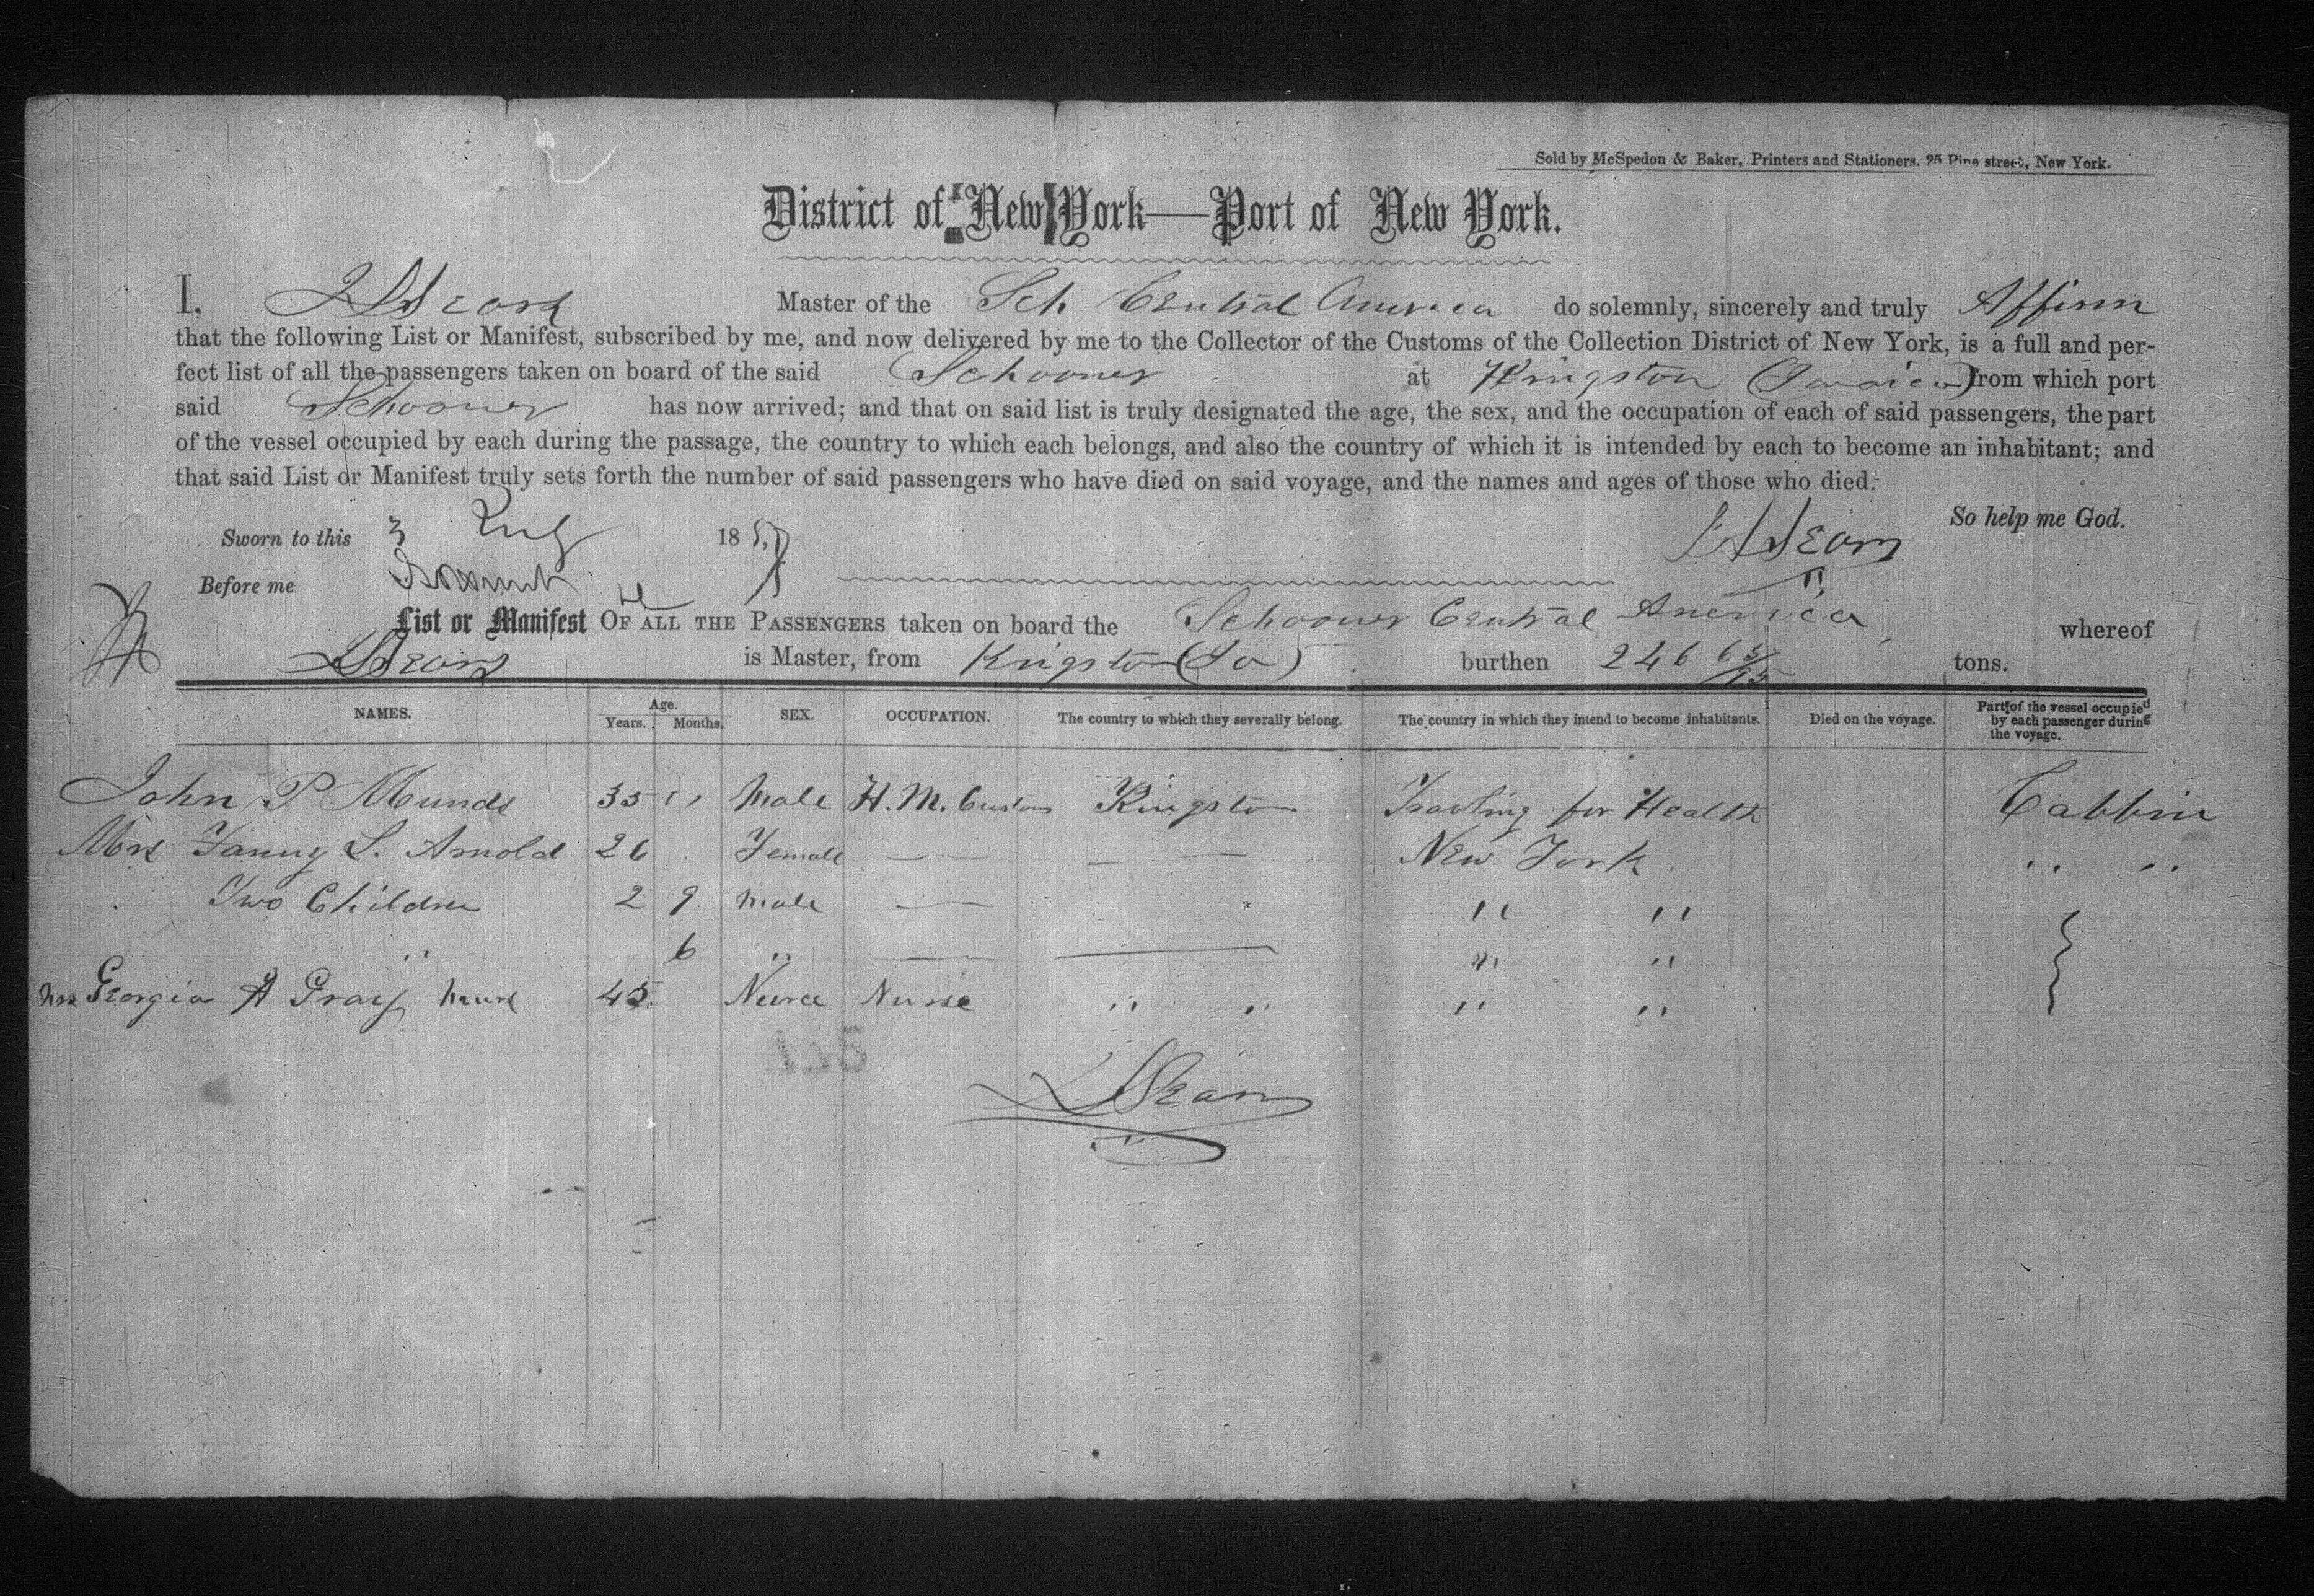 Sold by McSpedon & Baker, Printers and Stationers, 25 Pine street, New York.
District of New York—Port of New York.
I, Master of the Sch Central America do solemnly, sincerely and truly Affirm
that the following List or Manifest, subscribed by me, and now delivered by me to the Collector of the Customs of the Collection District of New York, is a full and per-
fect list of all the passengers taken on board of the said Schooner at Kingston (Jamaica) from which port
said Schooner has now arrived; and that on said list is truly designated the age, the sex, and the occupation of each of said passengers, the part
of the vessel occupied by each during the passage, the country to which each belongs, and also the country of which it is intended by each to become an inhabitant; and
that said List or Manifest truly sets forth the number of said passengers who have died on said voyage, and the names and ages of those who died.
So help me God.
Sworn to this 3 Aug 1857
Before me
List or Manifest OF ALL THE PASSENGERS taken on board the Schooner Central America whereof
is Master, from Kingston (Ja) burthen 246 65/95 tons.
NAMES. Age. Years. Months. SEX. OCCUPATION. The country to which they severally belong. The country in which they intend to become inhabitants. Died on the voyage. Part of the vessel occupied by each passenger during the voyage.
John P Munds 35 " Male H. M. Custom Kingston Travling for Health Cabbin
Mrs Fanny S. Arnold 26 Female — — — — New York " "
Two Children 2 9 Male — " "
" 6 " — — " "
Mrs Georgia A Gray Nurse 45 Nurse Nurse " " " "